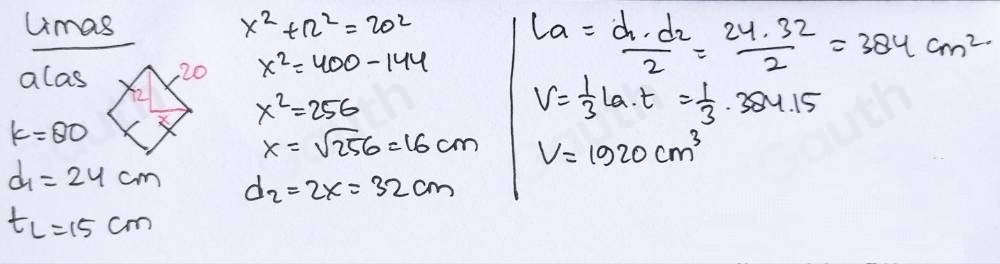 Limas
alas
20
12
x
k=80
d₁ = 24 cm
tL = 15 cm
x² + 12² = 20²
x² = 400 - 144
x² = 256
x = √256 = 16 cm
d₂ = 2x = 32 cm
La = d₁ . d₂ / 2 = 24 . 32 / 2 = 384 cm²
V = 1/3 La . t = 1/3 . 384 . 15
V = 1920 cm³
Gauth
Gauth
Gauth